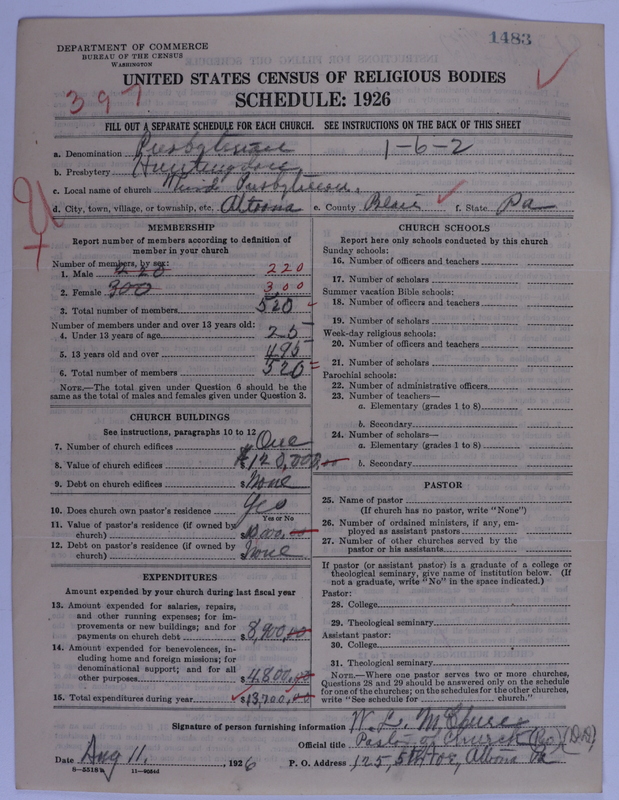 1483
DEPARTMENT OF COMMERCE
BUREAU OF THE CENSUS
WASHINGTON
UNITED STATES CENSUS OF RELIGIOUS BODIES
397
SCHEDULE: 1926
FILL OUT A SEPARATE SCHEDULE FOR EACH CHURCH. SEE INSTRUCTIONS ON THE BACK OF THIS SHEET
a. Denomination Presbyterian 1-6-2
b. Presbytery Huntingdon
c. Local name of church Third Presbyterian.
d. City, town, village, or township, etc. Altoona e. County Blair f. State Pa
MEMBERSHIP
Report number of members according to definition of
member in your church
Number of members, by sex:
1. Male 220 220
2. Female 300 300
3. Total number of members 520
Number of members under and over 13 years old:
4. Under 13 years of age 25
5. 13 years old and over 495
6. Total number of members 520
NOTE.—The total given under Question 6 should be the
same as the total of males and females given under Question 3.
CHURCH BUILDINGS
See instructions, paragraphs 10 to 12
7. Number of church edifices One
8. Value of church edifices $120,000.00
9. Debt on church edifices $None
10. Does church own pastor's residence Yes
Yes or No
11. Value of pastor's residence (if owned by
church) $10,000.00
12. Debt on pastor's residence (if owned by
church) $None
EXPENDITURES
Amount expended by your church during last fiscal year
13. Amount expended for salaries, repairs,
and other running expenses; for im-
provements or new buildings; and for
payments on church debt $8,900.00
14. Amount expended for benevolences, in-
cluding home and foreign missions; for
denominational support; and for all
other purposes $4,800.00
15. Total expenditures during year $13,700.00
CHURCH SCHOOLS
Report here only schools conducted by this church
Sunday schools:
16. Number of officers and teachers
17. Number of scholars
Summer vacation Bible schools:
18. Number of officers and teachers
19. Number of scholars
Week-day religious schools:
20. Number of officers and teachers
21. Number of scholars
Parochial schools:
22. Number of administrative officers
23. Number of teachers—
a. Elementary (grades 1 to 8)
b. Secondary
24. Number of scholars—
a. Elementary (grades 1 to 8)
b. Secondary
PASTOR
25. Name of pastor
(If church has no pastor, write "None")
26. Number of ordained ministers, if any, em-
ployed as assistant pastors
27. Number of other churches served by the
pastor or his assistants
If pastor (or assistant pastor) is a graduate of a college or
theological seminary, give name of institution below. (If
not a graduate, write "No" in the space indicated.)
Pastor:
28. College
29. Theological seminary
Assistant pastor:
30. College
31. Theological seminary
NOTE.—Where one pastor serves two or more churches,
Questions 28 and 29 should be answered only on the schedule
for one of the churches; on the schedules for the other churches,
write "See schedule for church."
Signature of person furnishing information W. L. McClure
Official title Pastor of Church (Rev) (D.D.)
Date Aug 11, 1926 P. O. Address 125, 5th Ave, Altoona Pa
8-5518 11-9034d